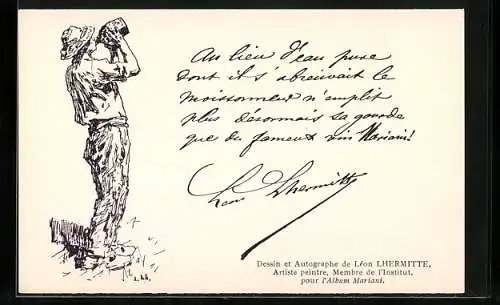 Au lieu d'eau pure
dont il s'abreuvait le
moissonneur n'emplit
plus désormais sa gourde
que du fameux vin Mariani!
Léon Lhermitte
Dessin et Autographe de LÉON LHERMITTE,
Artiste peintre, Membre de l'Institut,
pour l'Album Mariani.
L. Lh.